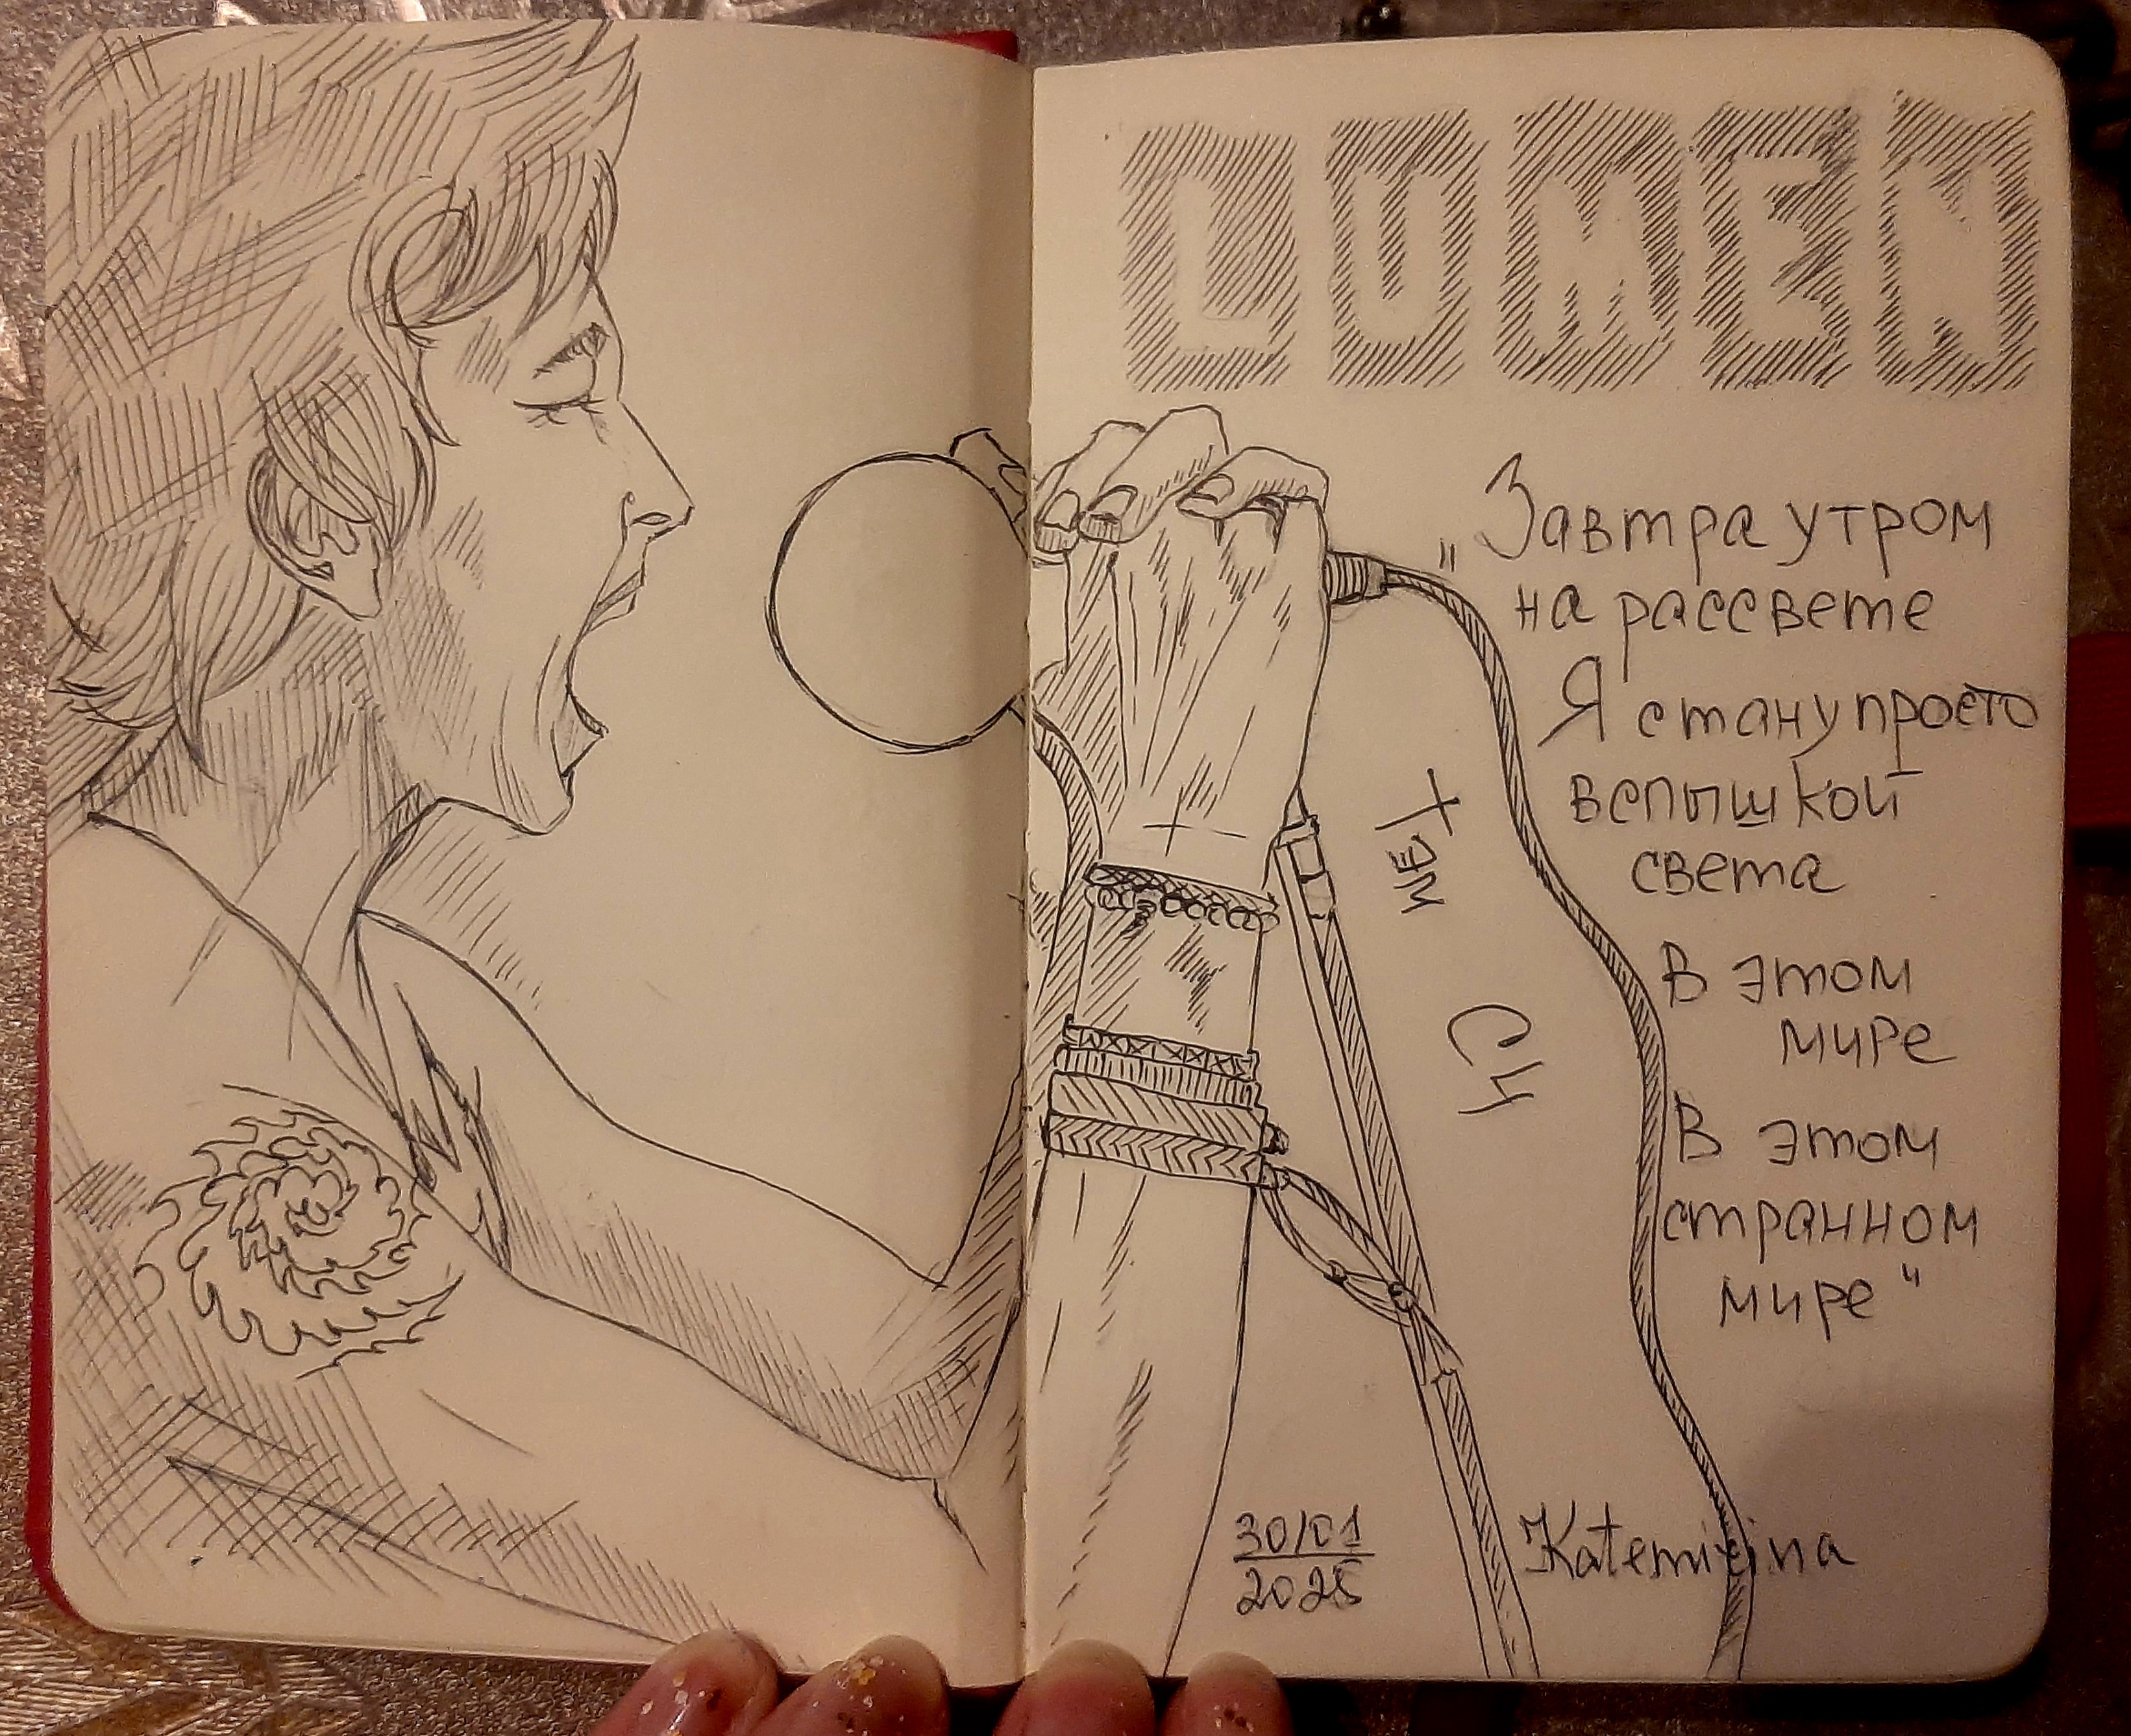 LUMEN
„Завтра утром
на рассвете
Я стану просто
вспышкой
света
В этом
мире
В этом
странном
мире"
Тэм
СЧ
30/01
2025